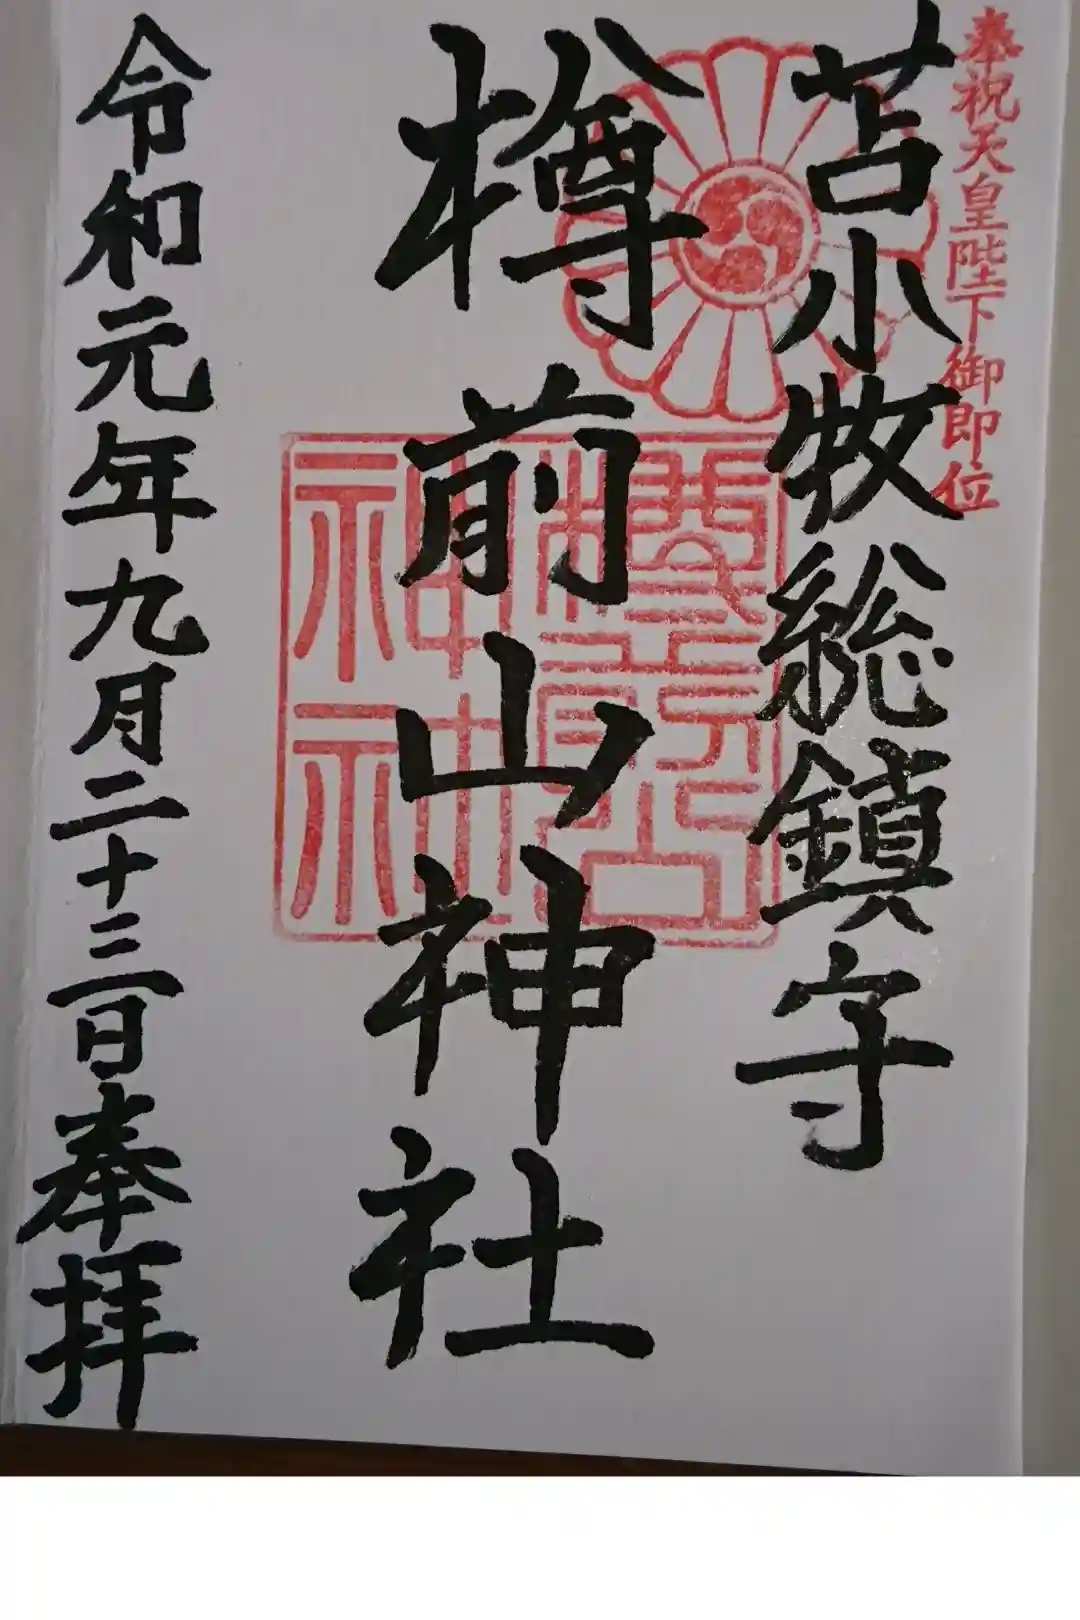 奉祝天皇陛下御即位
苫小牧総鎮守
樽前山神社
樽前山神社
令和元年九月二十三日奉拝